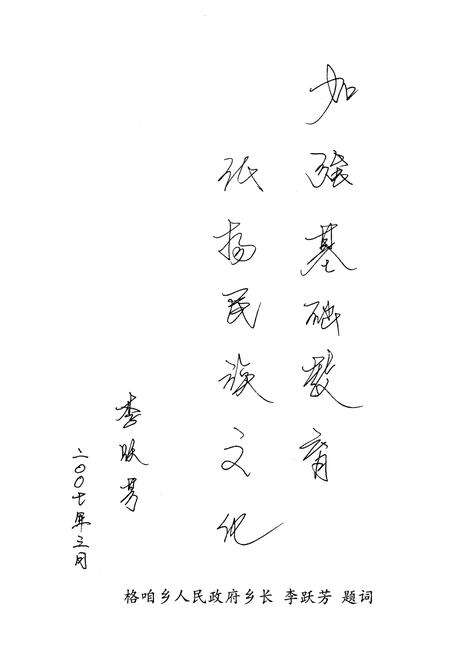 加强基础教育
张扬民族文化
李跃芳
二〇〇七年三月
格咱乡人民政府乡长 李跃芳 题词